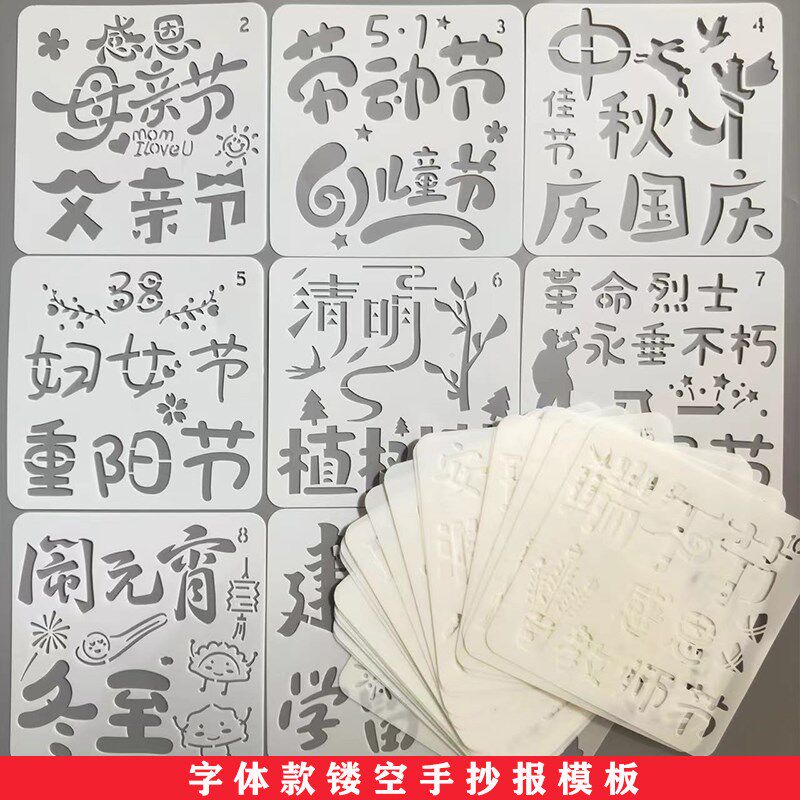 2
感恩
母亲节
mom
I love U
父亲节
3
5.1
劳动节
61儿童节
4
中秋
佳节
国庆
5
38
妇女节
重阳节
6
清明
植树
7
革命烈士
永垂不朽
8
闹元宵
冬至
建
学雷
端午节
教师节
字体款镂空手抄报模板